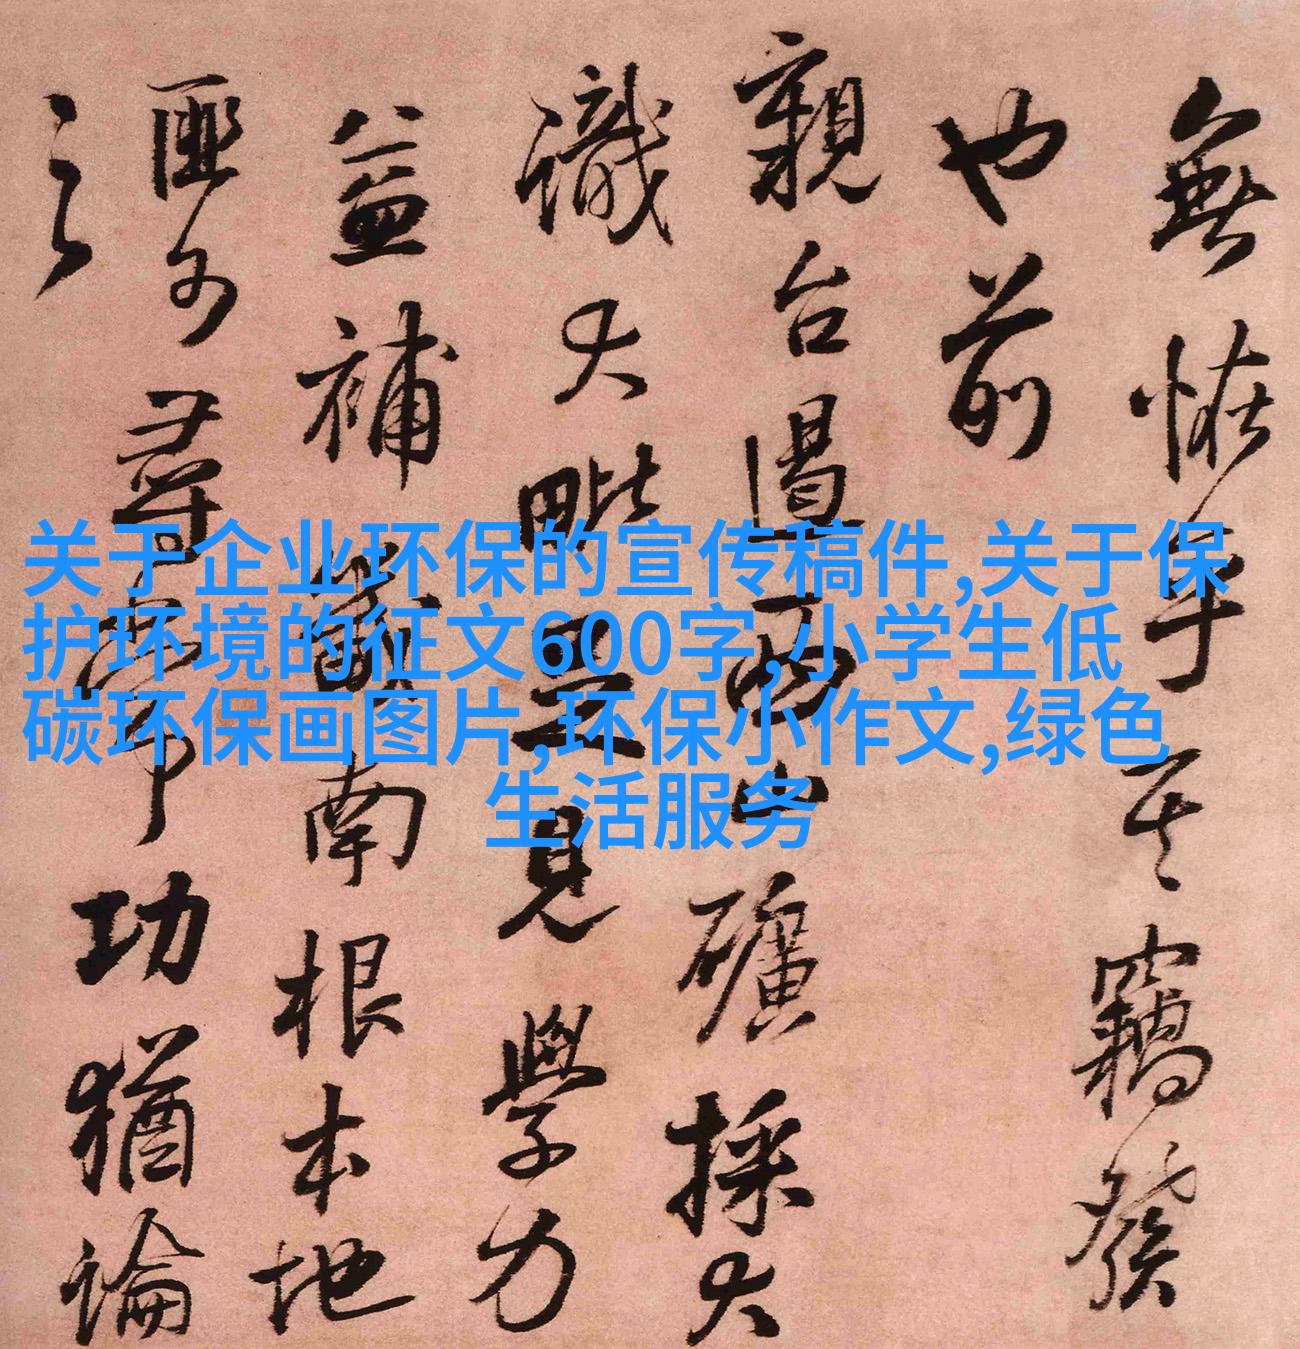 关于企业环保的宣传稿件,关于保
护环境的征文600字,小学生低
碳环保画图片,环保小作文,绿色
生活服务
無恠乎其竊發
也前
親台還西山礦採大
識大毗是見學力
益補嵗南根本地
匪尔尋常功猶論
之